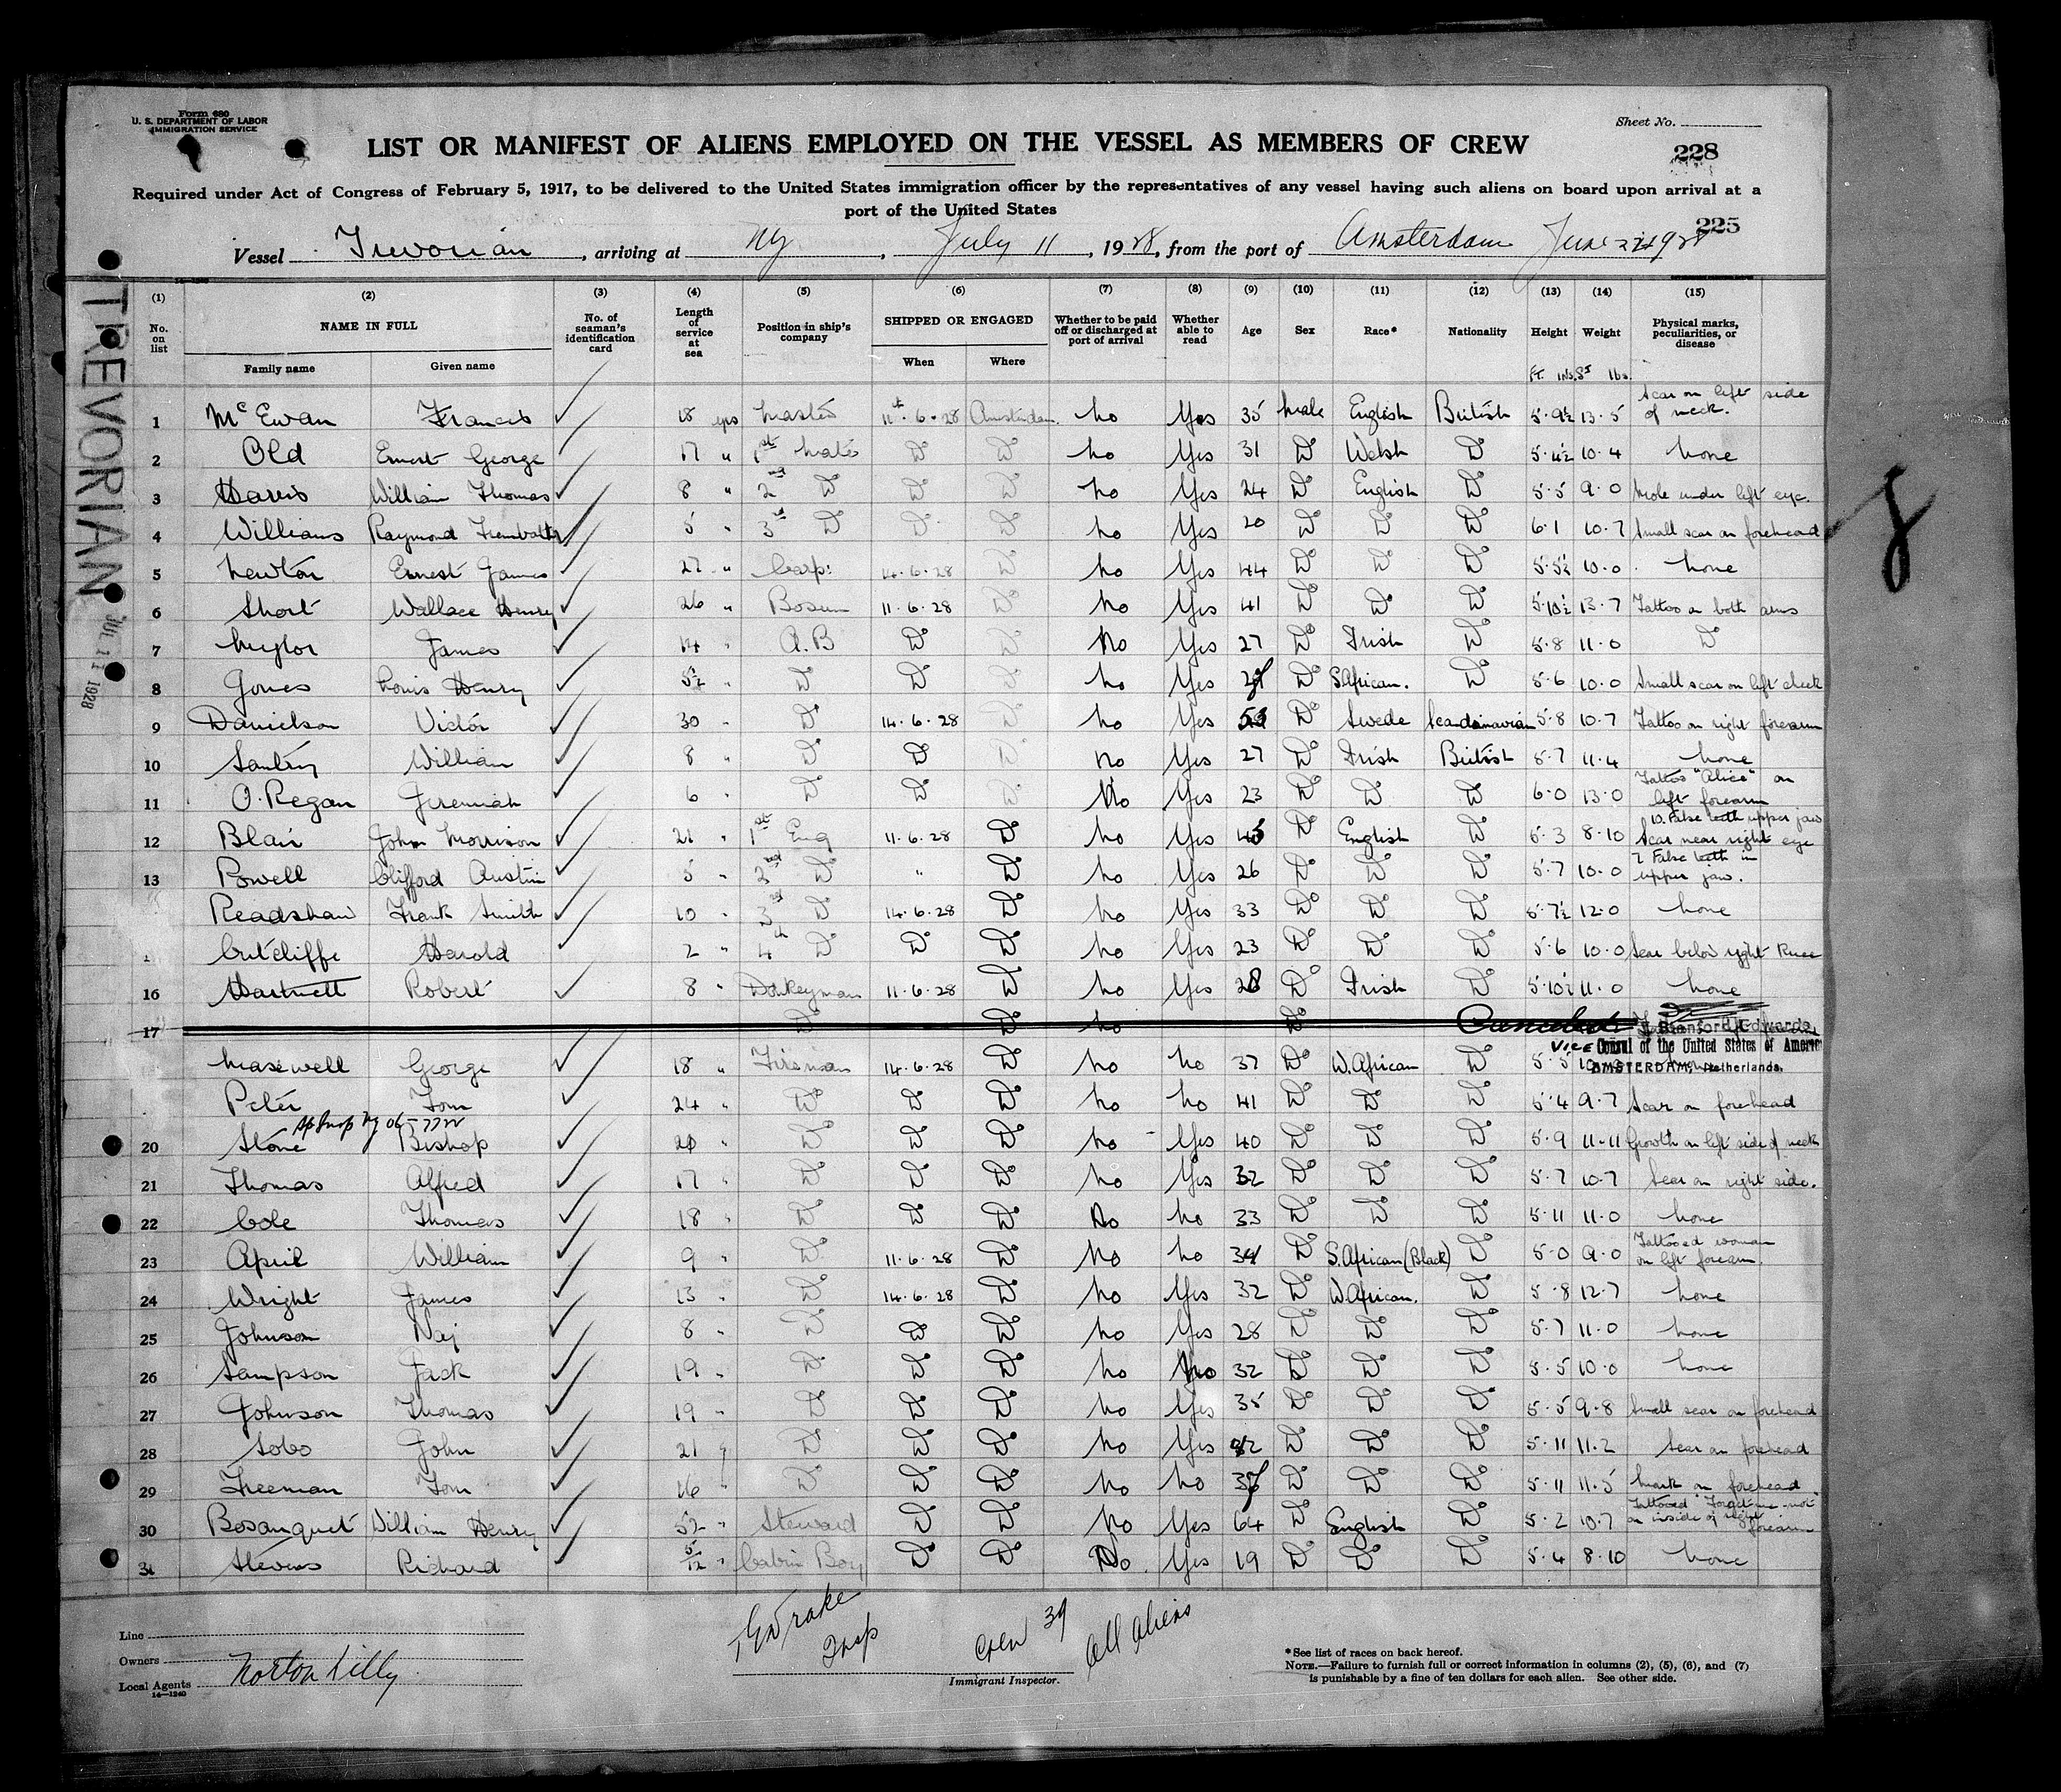 Form 680
U. S. DEPARTMENT OF LABOR
IMMIGRATION SERVICE
Sheet No.
LIST OR MANIFEST OF ALIENS EMPLOYED ON THE VESSEL AS MEMBERS OF CREW
228
Required under Act of Congress of February 5, 1917, to be delivered to the United States immigration officer by the representatives of any vessel having such aliens on board upon arrival at a
port of the United States
225
Vessel Trevorian, arriving at Ny, July 11, 1928, from the port of Amsterdam June
TREVORIAN JUL 11 1928
(1) (2) (3) (4) (5) (6) (7) (8) (9) (10) (11) (12) (13) (14) (15)
No. on list NAME IN FULL Family name Given name No. of seaman's identification card Length of service at sea Position in ship's company SHIPPED OR ENGAGED When Where Whether to be paid off or discharged at port of arrival Whether able to read Age Sex Race* Nationality Height Weight Physical marks, peculiarities, or disease
Ft. ins. St lbs.
1 McEwan Francis 18 yrs Master 11th.6.28 Amsterdam. No Yes 35 Male English British 5.9½ 13.5 Scar on left side of neck.
2 Old Ernest George 17 " 1st Mate Do Do No Yes 31 Do Welsh Do 5.4½ 10.4 None
3 Harris William Thomas 8 " 2nd Do Do Do No Yes 24 Do English Do 5.5 9.0 Mole under left eye.
4 Williams Raymond 5 " 3rd Do Do Do No Yes 20 Do Do Do 6.1 10.7 Small scar on forehead
5 Newton Ernest James 27 " Carp: 14.6.28 Do No Yes 44 Do Do Do 5.5½ 10.0 None
6 Short Wallace Henry 26 " Bosun 11.6.28 Do No Yes 41 Do Do Do 5.10½ 13.7 Tattoo on both arms
7 James 14 " A.B Do Do No Yes 27 Do Irish Do 5.8 11.0 Do
8 Jones Louis Henry 5½ " Do Do Do No Yes Do S.African. Do 5.6 10.0 Small scar on left cheek
9 Danielson Victor 30 " Do 14.6.28 Do No Yes 53 Do Swede Scandinavian 5.8 10.7 Tattoo on right forearm
10 Santry William 8 " Do Do Do No Yes 27 Do Irish British 5.7 11.4 None
11 O.Regan Jeremiah 6 " Do Do Do No Yes 23 Do Do Do 6.0 13.0 Tattoo "Alice" on left forearm
12 Blair John Morrison 21 " 1st Eng 11.6.28 Do No Yes 45 Do English Do 5.3 8.10 10. False teeth upper jaw Scar near right eye
13 Powell Clifford Austin 5 " 2nd Do " Do No Yes 26 Do Do Do 5.7 10.0 7 False teeth in upper jaw.
Readshaw Frank Smith 10 " 3rd Do 14.6.28 Do No Yes 33 Do Do Do 5.7½ 12.0 None
Cutcliffe Harold 2 " 4th Do Do Do No Yes 23 Do Do Do 5.6 10.0 Scar below right Knee
16 Hartnett Robert 8 " Donkeyman 11.6.28 Do No Yes 28 Do Irish Do 5.10½ 11.0 None
17 Do Do No Do Canceled J. Blanford Edwards
Vice Consul of the United States of America
AMSTERDAM, Netherlands.
Maxwell George 18 " Fireman 14.6.28 Do No No 37 Do W.African Do 5.5
Peter Tom 24 " Do Do Do No No 41 Do Do Do 5.4 9.7 Scar on forehead
20 Stone Bishop 20 " Do Do Do No Yes 40 Do Do Do 5.9 11.11 Growth on left side of neck
21 Thomas Alfred 17 " Do Do Do No Yes 32 Do Do Do 5.7 10.7 Scar on right side.
22 Cole Thomas 18 " Do Do Do No No 33 Do Do Do 5.11 11.0 None
23 April William 9 " Do 11.6.28 Do No No 34 Do S.African (Black) Do 5.0 9.0 Tattooed woman on left forearm.
24 Wright James 13 " Do 14.6.28 Do No Yes 32 Do W.African. Do 5.8 12.7 None
25 Johnson Naj 8 " Do Do Do No Yes 28 Do Do Do 5.7 11.0 None
26 Sampson Jack 19 " Do Do Do No No 32 Do Do Do 5.5 10.0 None
27 Johnson Thomas 19 " Do Do Do No Yes 35 Do Do Do 5.5 9.8 Small scar on forehead
28 Sobo John 21 " Do Do Do No Yes Do Do Do 5.11 11.2 Scar on forehead
29 Freeman Tom 16 " Do Do Do No No 37 Do Do Do 5.11 11.5 Mark on forehead
30 Bosanquet William Henry 52 " Steward Do Do No Yes 64 Do English Do 5.2 10.7 Tattooed "Forget-me-not" on inside of right forearm
31 Stevens Richard 5/12 " Cabin Boy Do Do No. Yes 19 Do Do Do 5.4 8.10 None
Line
Owners
Local Agents Norton Lilly
14—1240
Drake Insp
Immigrant Inspector.
Crew 39 All Aliens
*See list of races on back hereof.
NOTE.—Failure to furnish full or correct information in columns (2), (5), (6), and (7)
is punishable by a fine of ten dollars for each alien. See other side.